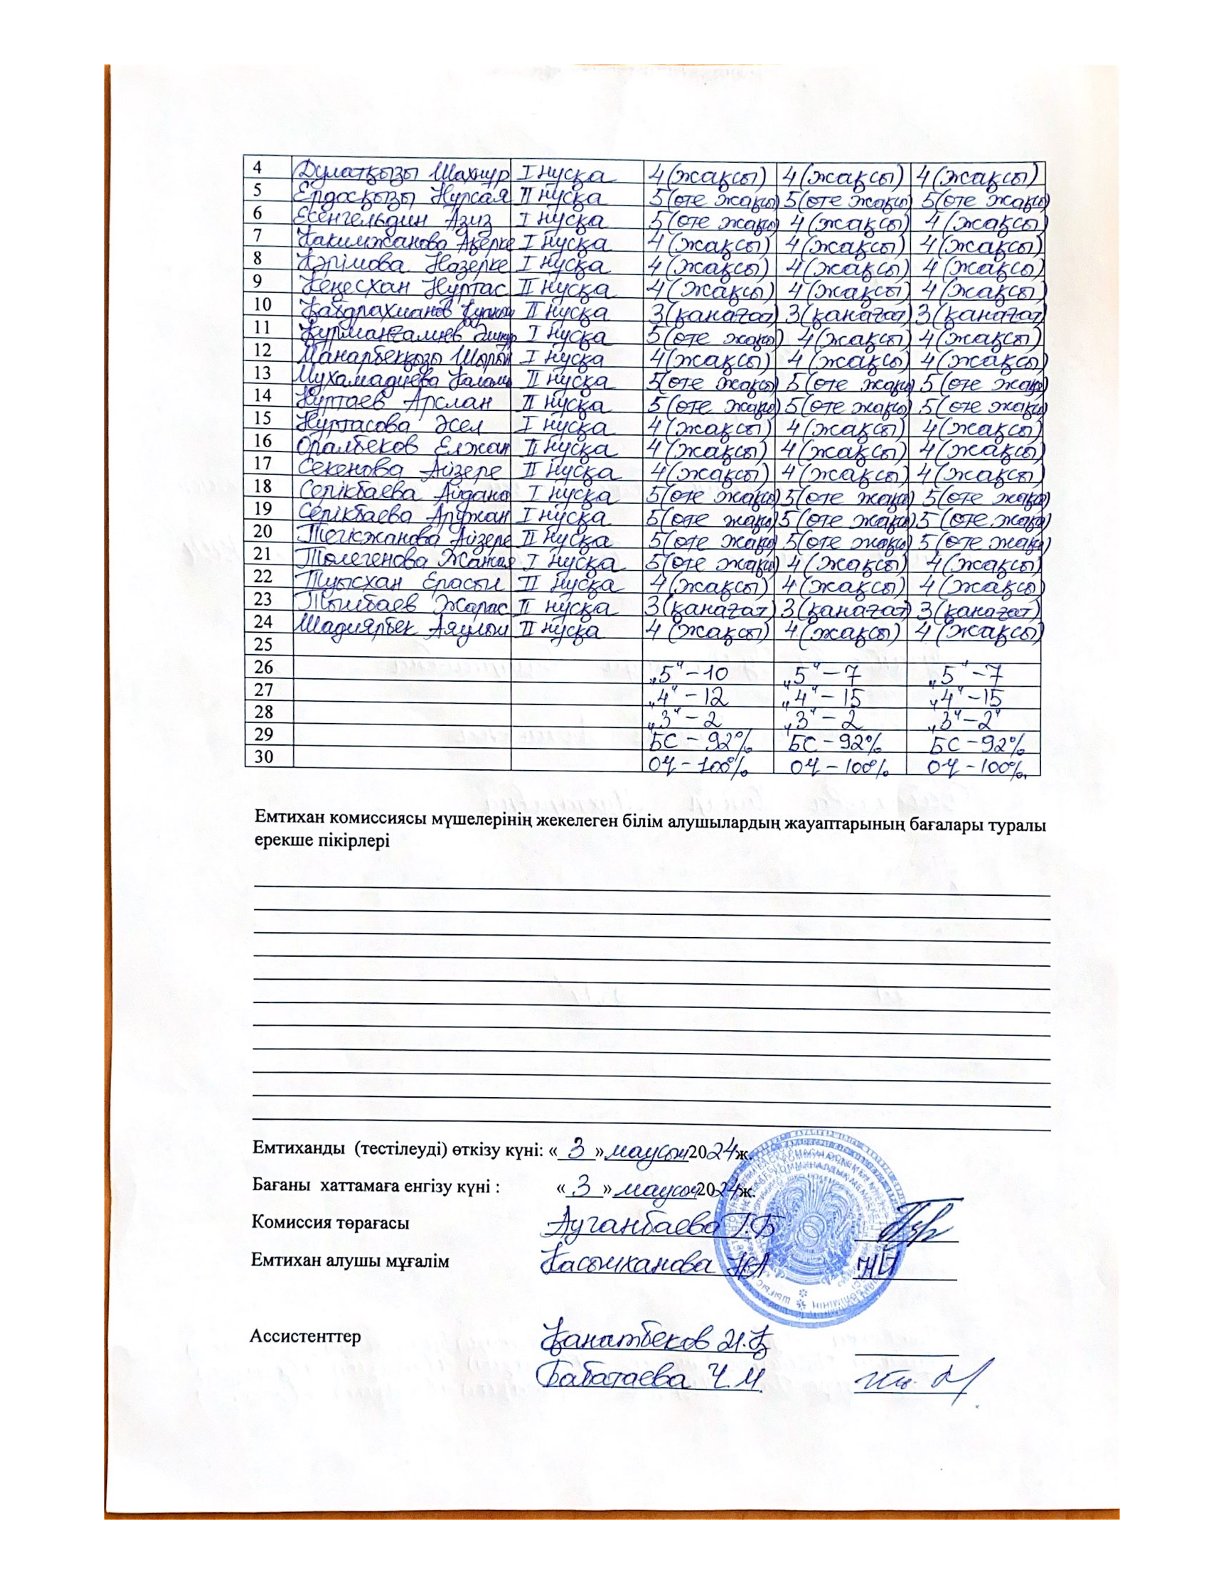 4 Дулатқызы Шахнур I нұсқа 4(жақсы) 4(жақсы) 4(жақсы)
5 Ердосқызы Нұрсая II нұсқа 5(өте жақсы) 5(өте жақсы) 5(өте жақсы)
6 Есенгельдин Азиз I нұсқа 5(өте жақсы) 4(жақсы) 4(жақсы)
7 Какимжанова Ақерке I нұсқа 4(жақсы) 4(жақсы) 4(жақсы)
8 Кәрімова Назерке I нұсқа 4(жақсы) 4(жақсы) 4(жақсы)
9 Кеңесхан Нұртас II нұсқа 4(жақсы) 4(жақсы) 4(жақсы)
10 II нұсқа 3(қанағат) 3(қанағат) 3(қанағат)
11 Құрманғалиев I нұсқа 5(өте жақсы) 4(жақсы) 4(жақсы)
12 Манарбекқызы I нұсқа 4(жақсы) 4(жақсы) 4(жақсы)
13 Мухамадиева II нұсқа 5(өте жақсы) 5(өте жақсы) 5(өте жақсы)
14 Нұртаев Арслан II нұсқа 5(өте жақсы) 5(өте жақсы) 5(өте жақсы)
15 Нұртасова Әсел I нұсқа 4(жақсы) 4(жақсы) 4(жақсы)
16 Оралбеков Елжан II нұсқа 4(жақсы) 4(жақсы) 4(жақсы)
17 Секенова Айзере II нұсқа 4(жақсы) 4(жақсы) 4(жақсы)
18 Серікбаева Айдана I нұсқа 5(өте жақсы) 5(өте жақсы) 5(өте жақсы)
19 Серікбаева Аружан I нұсқа 5(өте жақсы) 5(өте жақсы) 5(өте жақсы)
20 Айзере II нұсқа 5(өте жақсы) 5(өте жақсы) 5(өте жақсы)
21 Төлегенова I нұсқа 5(өте жақсы) 4(жақсы) 4(жақсы)
22 Туысхан Ерасыл II нұсқа 4(жақсы) 4(жақсы) 4(жақсы)
23 Тышбаев Жарас II нұсқа 3(қанағат) 3(қанағат) 3(қанағат)
24 Шадиярбек Аяулым II нұсқа 4(жақсы) 4(жақсы) 4(жақсы)
25
26 „5“ – 10 „5“ – 7 „5“ – 7
27 „4“ – 12 „4“ – 15 „4“ – 15
28 „3“ – 2 „3“ – 2 „3“ – 2
29 БС – 92% БС – 92% БС – 92%
30 ОҮ – 100% ОҮ – 100% ОҮ – 100%
Емтихан комиссиясы мүшелерінің жекелеген білім алушылардың жауаптарының бағалары туралы
ерекше пікірлері
Емтиханды (тестілеуді) өткізу күні: «3» маусым 2024 ж.
Бағаны хаттамаға енгізу күні : «3» маусым 2024 ж.
Комиссия төрағасы Ауганбаева Г.Б
Емтихан алушы мұғалім Касымханова Н.А
Ассистенттер Қанатбеков И.Қ
Бабатаева Ч.М